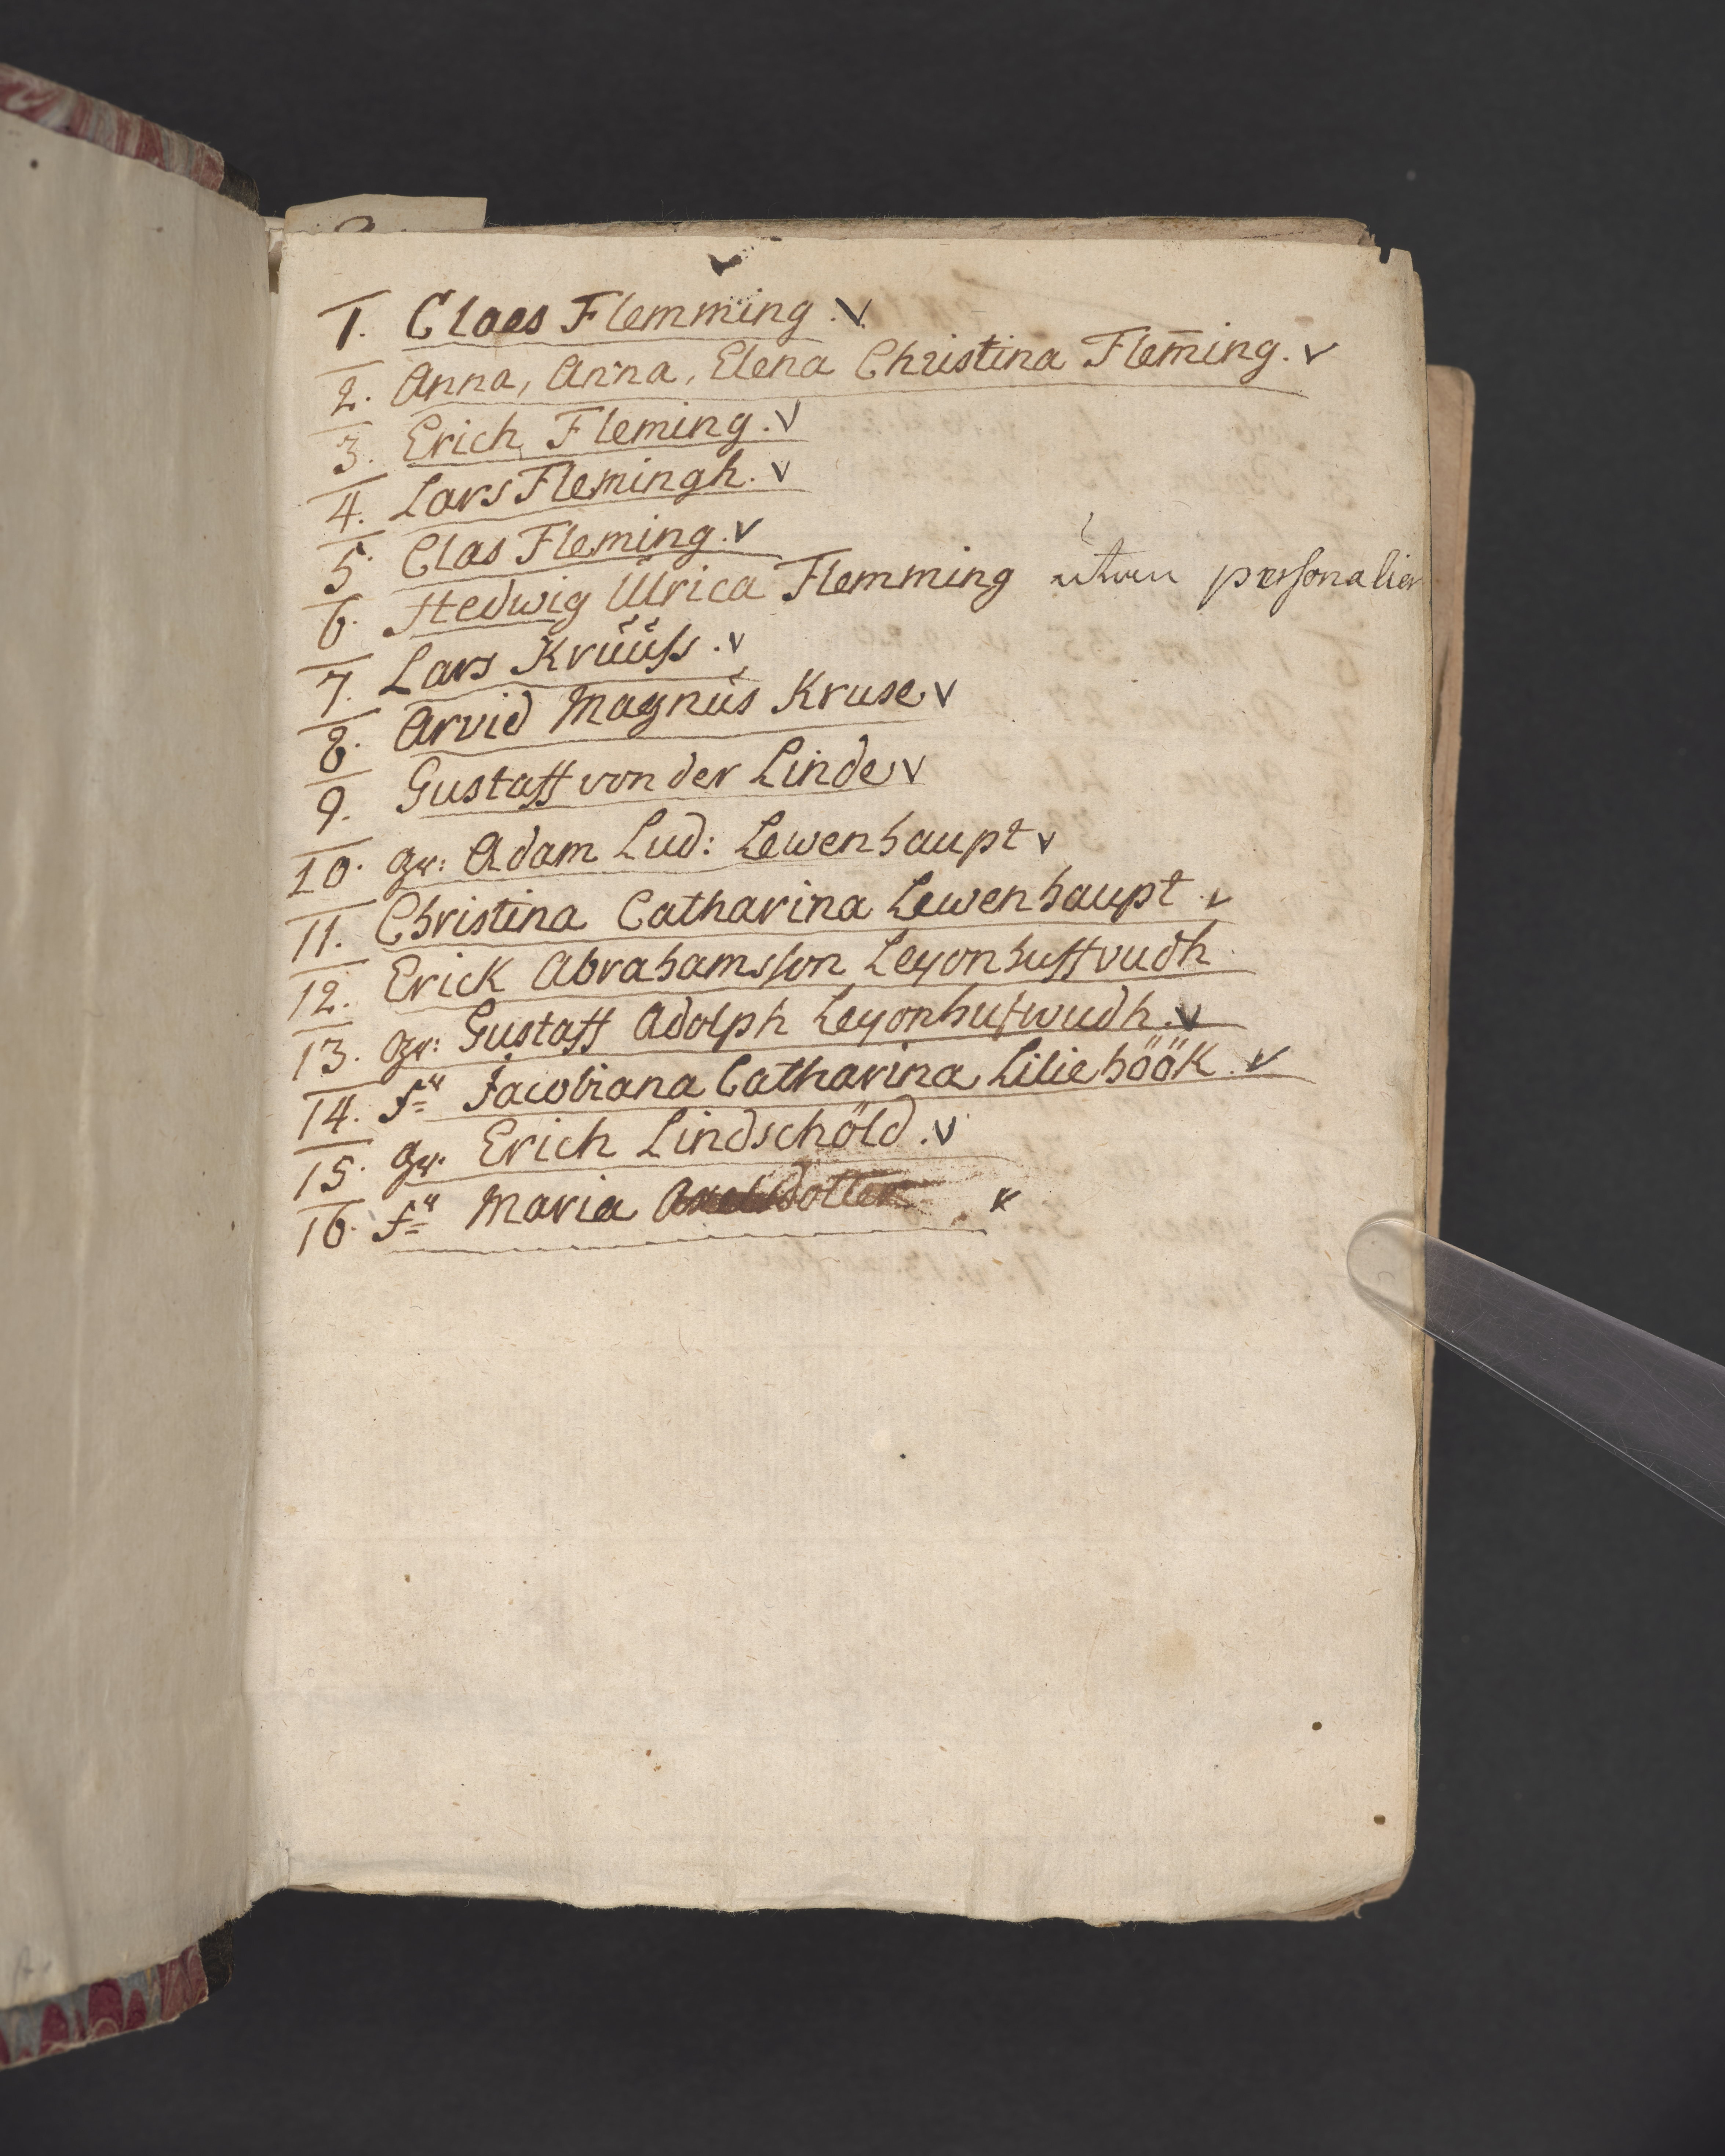 1. Claes Flemming. v
2. Anna, Anna, Elena Christina Flem̄ing. v
3. Erich Fleming. v
4. Lars Flemingh. v
5. Clas Fleming. v
6. Hedwig Ulrica Flemming utan personalier
7. Lars Krŭŭss. v
8. Arvid Magnus Kruse v
9. Gustaff von der Linde v
10. gr: Adam Lud: Lewenhaupt v
11. Christina Catharina Lewenhaupt. v
12. Erick Abrahamsson Leyonhuffvudh.
13. gr: Gustaff Adolph Leyonhufwudh. v
14. fru Jacobiana Catharina Liliehöök. v
15. gr. Erich Lindschöld. v
16. fru Maria